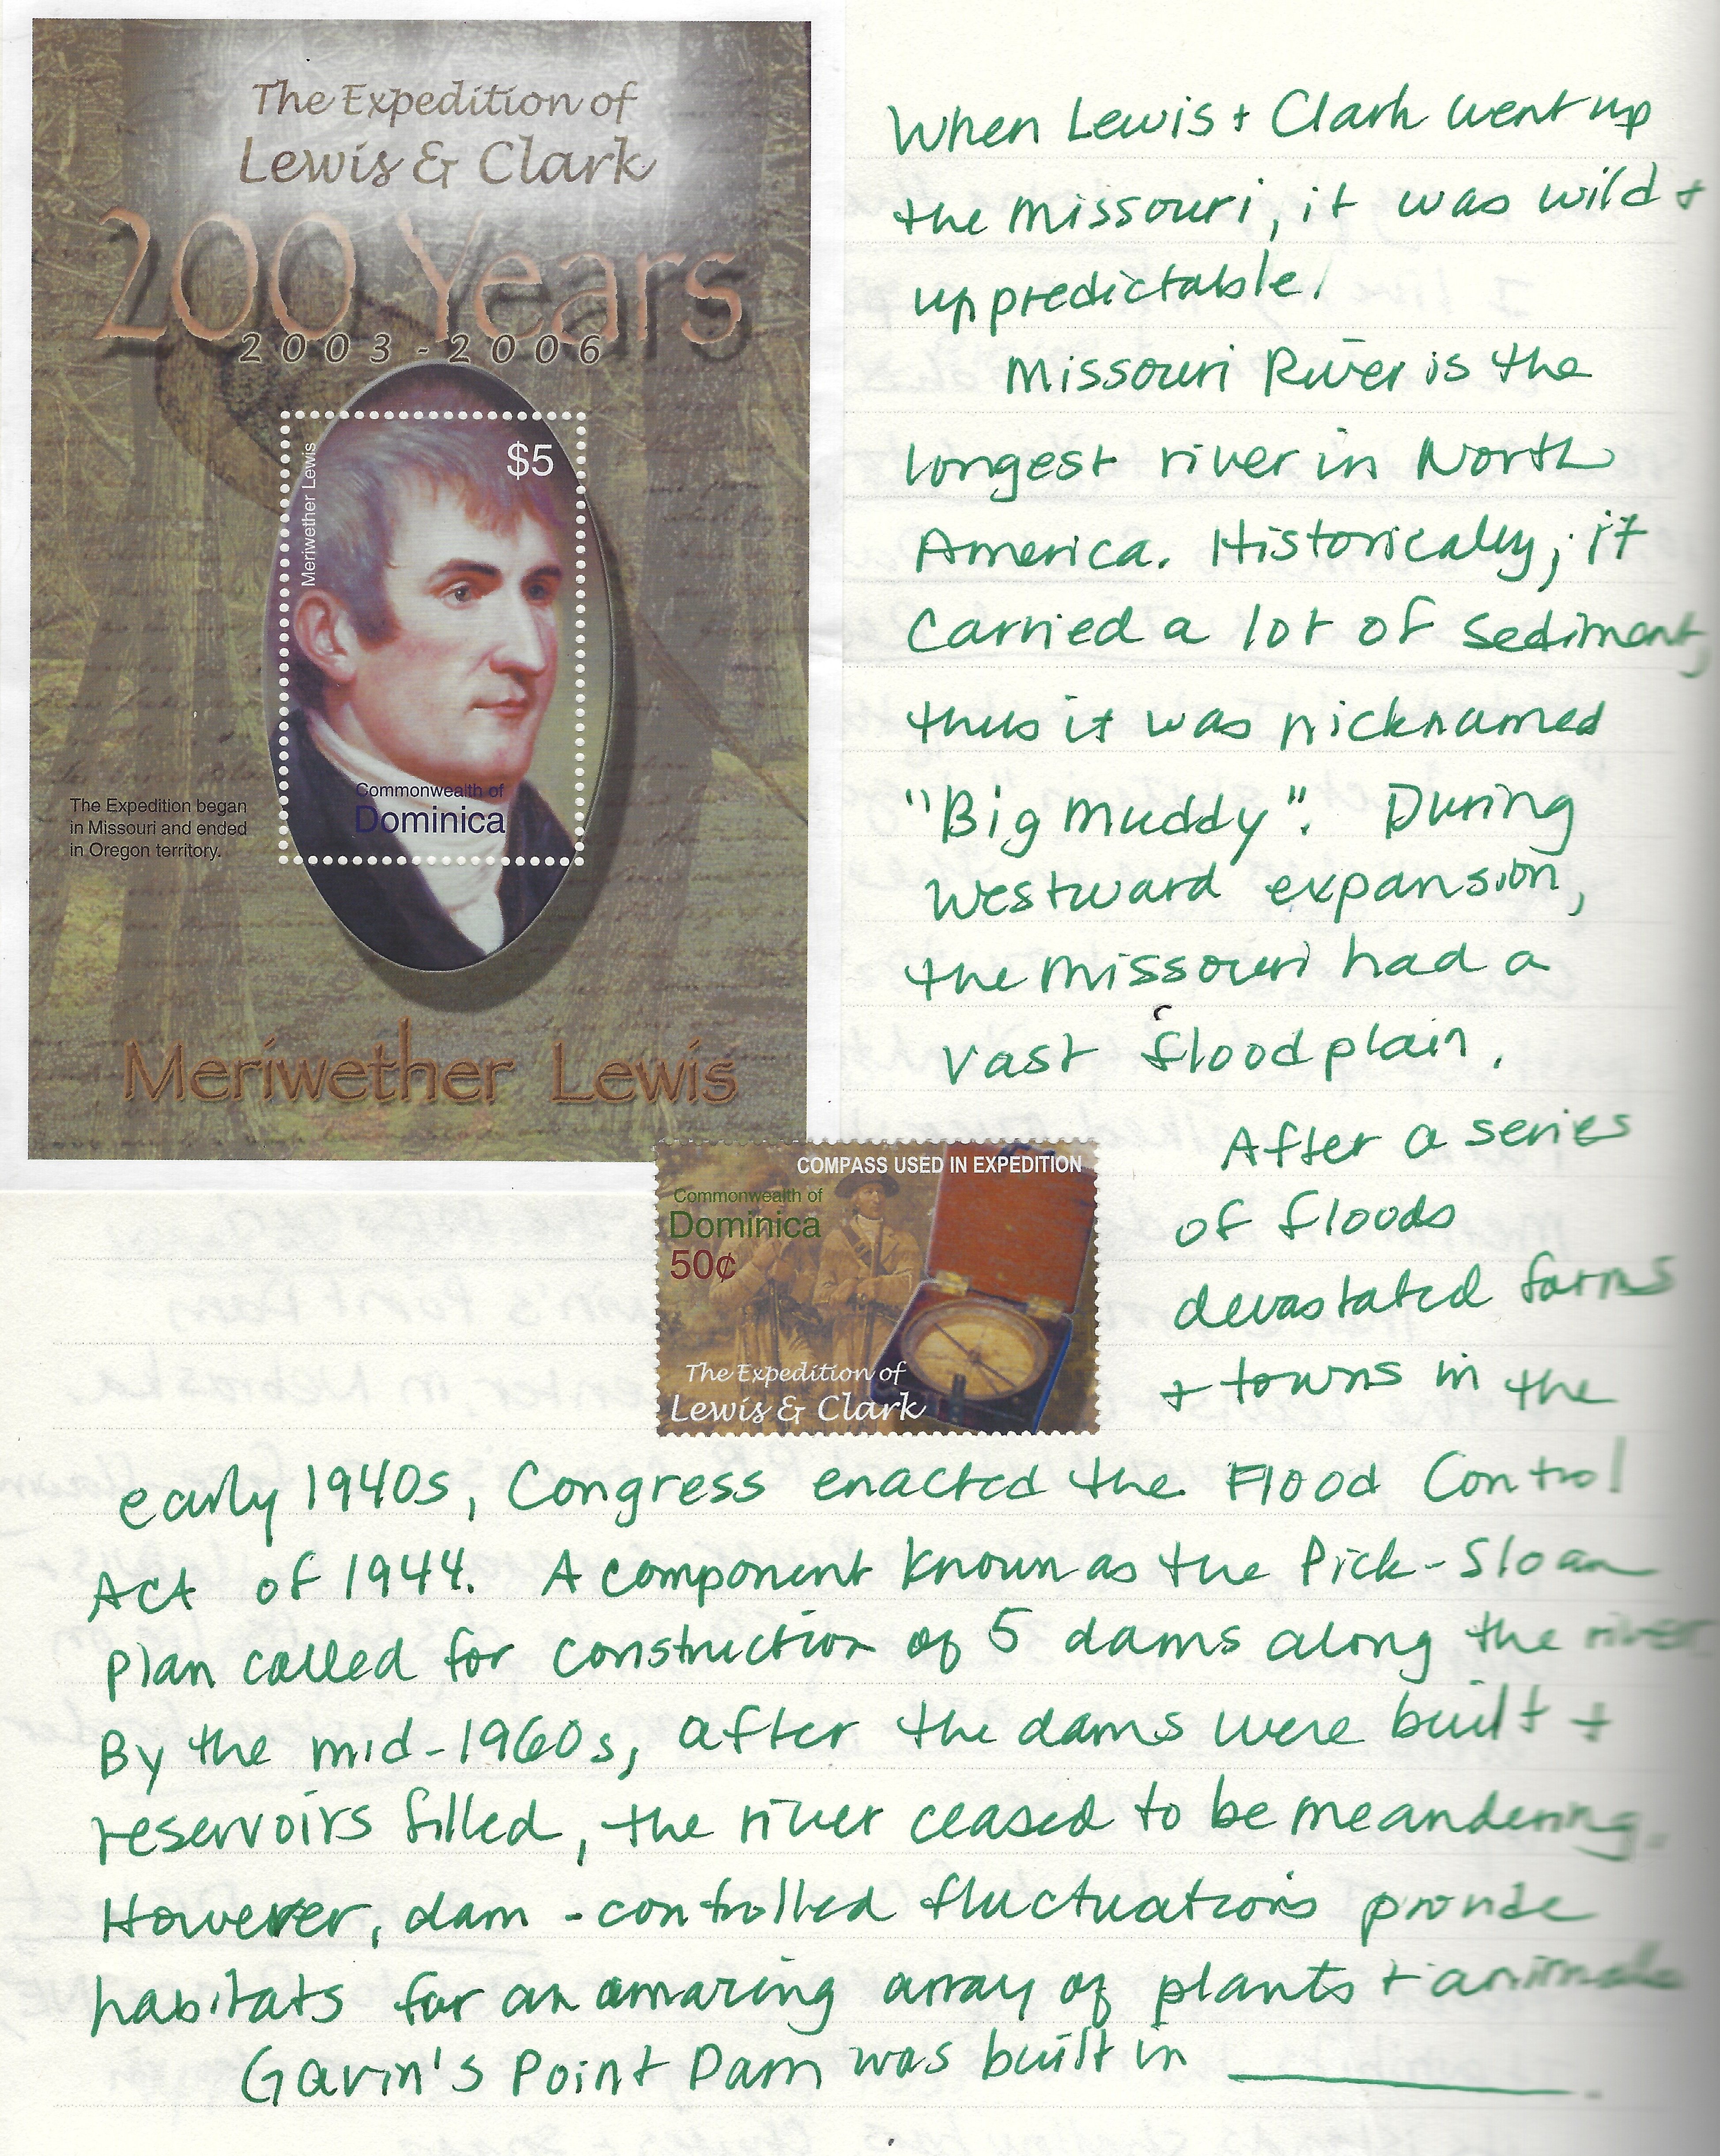 The Expedition of
Lewis & Clark
200 Years
2003-2006
Meriwether Lewis
$5
Commonwealth of
Dominica
The Expedition began
in Missouri and ended
in Oregon territory.
Meriwether Lewis
COMPASS USED IN EXPEDITION
Commonwealth of
Dominica
50¢
The Expedition of
Lewis & Clark
When Lewis + Clark went up
the Missouri, it was wild +
unpredictable.
Missouri River is the
longest river in North
America. Historically, it
carried a lot of sediment,
thus it was nicknamed
"Big Muddy". During
westward expansion,
the Missouri had a
vast floodplain.
After a series
of floods
devastated farms
+ towns in the
early 1940s, Congress enacted the Flood Control
Act of 1944. A component known as the Pick-Sloan
plan called for construction of 5 dams along the river.
By the mid-1960s, after the dams were built +
reservoirs filled, the river ceased to be meandering.
However, dam-controlled fluctuations provide
habitats for an amazing array of plants + animals
Gavin's Point Dam was built in ______.